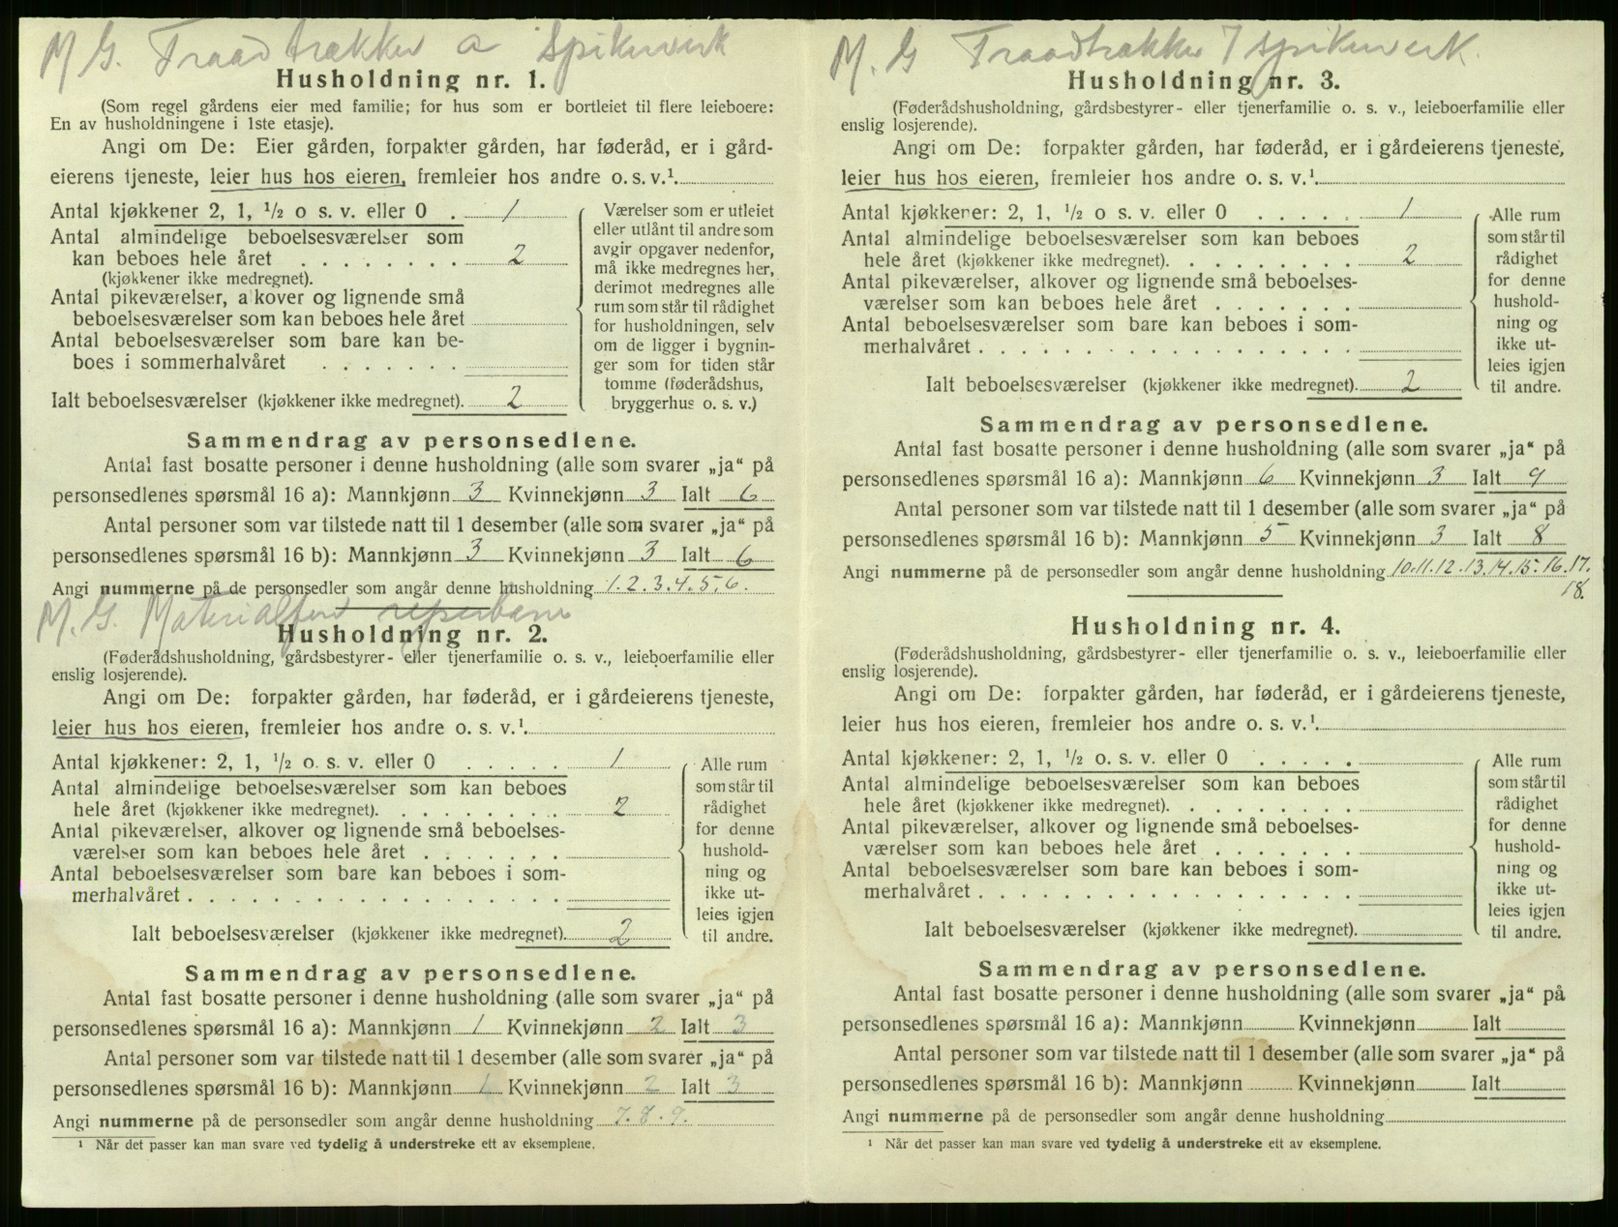 M. G. Traadtrækker a Spikerverk
Husholdning nr. 1.
(Som regel gårdens eier med familie; for hus som er bortleiet til flere leieboere:
En av husholdningene i 1ste etasje).
Angi om De: Eier gården, forpakter gården, har føderåd, er i gård-
eierens tjeneste, leier hus hos eieren, fremleier hos andre o. s. v.¹
Antal kjøkkener 2, 1, ½ o s. v. eller 0 . 1
Antal almindelige beboelsesværelser som
kan beboes hele året . . . . . . . . 2
(kjøkkener ikke medregnet).
Antal pikeværelser, alkover og lignende små
beboelsesværelser som kan beboes hele året
Antal beboelsesværelser som bare kan be-
boes i sommerhalvåret . . . . . . .
Ialt beboelsesværelser (kjøkkener ikke medregnet). 2
Værelser som er utleiet
eller utlånt til andre som
avgir opgaver nedenfor,
må ikke medregnes her,
derimot medregnes alle
rum som står til rådighet
for husholdningen, selv
om de ligger i bygnin-
ger som for tiden står
tomme (føderådshus,
bryggerhus o. s. v.)
Sammendrag av personsedlene.
Antal fast bosatte personer i denne husholdning (alle som svarer „ja“ på
personsedlenes spørsmål 16 a): Mannkjønn 3 Kvinnekjønn 3 Ialt 6
Antal personer som var tilstede natt til 1 desember (alle som svarer „ja“ på
personsedlenes spørsmål 16 b): Mannkjønn 3 Kvinnekjønn 3 Ialt 6
Angi nummerne på de personsedler som angår denne husholdning 1. 2. 3. 4. 5. 6.
M. G. Materialforv reperbane
Husholdning nr. 2.
(Føderådshusholdning, gårdsbestyrer- eller tjenerfamilie o. s. v., leieboerfamilie eller
enslig losjerende).
Angi om De: forpakter gården, har føderåd, er i gårdeierens tjeneste,
leier hus hos eieren, fremleier hos andre o. s. v.¹
Antal kjøkkener: 2, 1, ½ o. s. v. eller 0 . . . . . 1
Antal almindelige beboelsesværelser som kan beboes
hele året (kjøkkener ikke medregnet). . . . . . . . 2
Antal pikeværelser, alkover og lignende små beboelses-
værelser som kan beboes hele året . . . . . . .
Antal beboelsesværelser som bare kan beboes i som-
merhalvåret . . . . . . . . . . . . . . . . . .
Ialt beboelsesværelser (kjøkkener ikke medregnet). 2
Alle rum
som står til
rådighet
for denne
hushold-
ning og
ikke ut-
leies igjen
til andre.
Sammendrag av personsedlene.
Antal fast bosatte personer i denne husholdning (alle som svarer „ja“ på
personsedlenes spørsmål 16 a): Mannkjønn 1 Kvinnekjønn 2 Ialt 3
Antal personer som var tilstede natt til 1 desember (alle som svarer „ja“ på
personsedlenes spørsmål 16 b): Mannkjønn 1 Kvinnekjønn 2 Ialt 3
Angi nummerne på de personsedler som angår denne husholdning 7. 8. 9.
¹ Når det passer kan man svare ved tydelig å understreke ett av eksemplene.
M. G Traadtrækker / spikerverk.
Husholdning nr. 3.
(Føderådshusholdning, gårdsbestyrer- eller tjenerfamilie o. s. v., leieboerfamilie eller
enslig losjerende).
Angi om De: forpakter gården, har føderåd, er i gårdeierens tjeneste,
leier hus hos eieren, fremleier hos andre o. s. v.¹
Antal kjøkkener: 2, 1, ½ o. s. v. eller 0 . . . . . 1
Antal almindelige beboelsesværelser som kan beboes
hele året (kjøkkener ikke medregnet). . . . . . . . 2
Antal pikeværelser, alkover og lignende små beboelses-
værelser som kan beboes hele året . . . . . . .
Antal beboelsesværelser som bare kan beboes i som-
merhalvåret . . . . . . . . . . . . . . . . . .
Ialt beboelsesværelser (kjøkkener ikke medregnet). 2
Alle rum
som står til
rådighet
for denne
hushold-
ning og
ikke ut-
leies igjen
til andre.
Sammendrag av personsedlene.
Antal fast bosatte personer i denne husholdning (alle som svarer „ja“ på
personsedlenes spørsmål 16 a): Mannkjønn 6 Kvinnekjønn 3 Ialt 9
Antal personer som var tilstede natt til 1 desember (alle som svarer „ja“ på
personsedlenes spørsmål 16 b): Mannkjønn 5 Kvinnekjønn 3 Ialt 8
Angi nummerne på de personsedler som angår denne husholdning 10. 11. 12. 13. 14. 15. 16. 17.
18.
Husholdning nr. 4.
(Føderådshusholdning, gårdsbestyrer- eller tjenerfamilie o. s. v., leieboerfamilie eller
enslig losjerende).
Angi om De: forpakter gården, har føderåd, er i gårdeierens tjeneste,
leier hus hos eieren, fremleier hos andre o. s. v.¹
Antal kjøkkener: 2, 1, ½ o. s. v. eller 0 . . . . .
Antal almindelige beboelsesværelser som kan beboes
hele året (kjøkkener ikke medregnet). . . . . . . .
Antal pikeværelser, alkover og lignende små beboelses-
værelser som kan beboes hele året . . . . . . .
Antal beboelsesværelser som bare kan beboes i som-
merhalvåret . . . . . . . . . . . . . . . . . .
Ialt beboelsesværelser (kjøkkener ikke medregnet).
Alle rum
som står til
rådighet
for denne
hushold-
ning og
ikke ut-
leies igjen
til andre.
Sammendrag av personsedlene.
Antal fast bosatte personer i denne husholdning (alle som svarer „ja“ på
personsedlenes spørsmål 16 a): Mannkjønn Kvinnekjønn Ialt
Antal personer som var tilstede natt til 1 desember (alle som svarer „ja“ på
personsedlenes spørsmål 16 b): Mannkjønn Kvinnekjønn Ialt
Angi nummerne på de personsedler som angår denne husholdning
¹ Når det passer kan man svare ved tydelig å understreke ett av eksemplene.